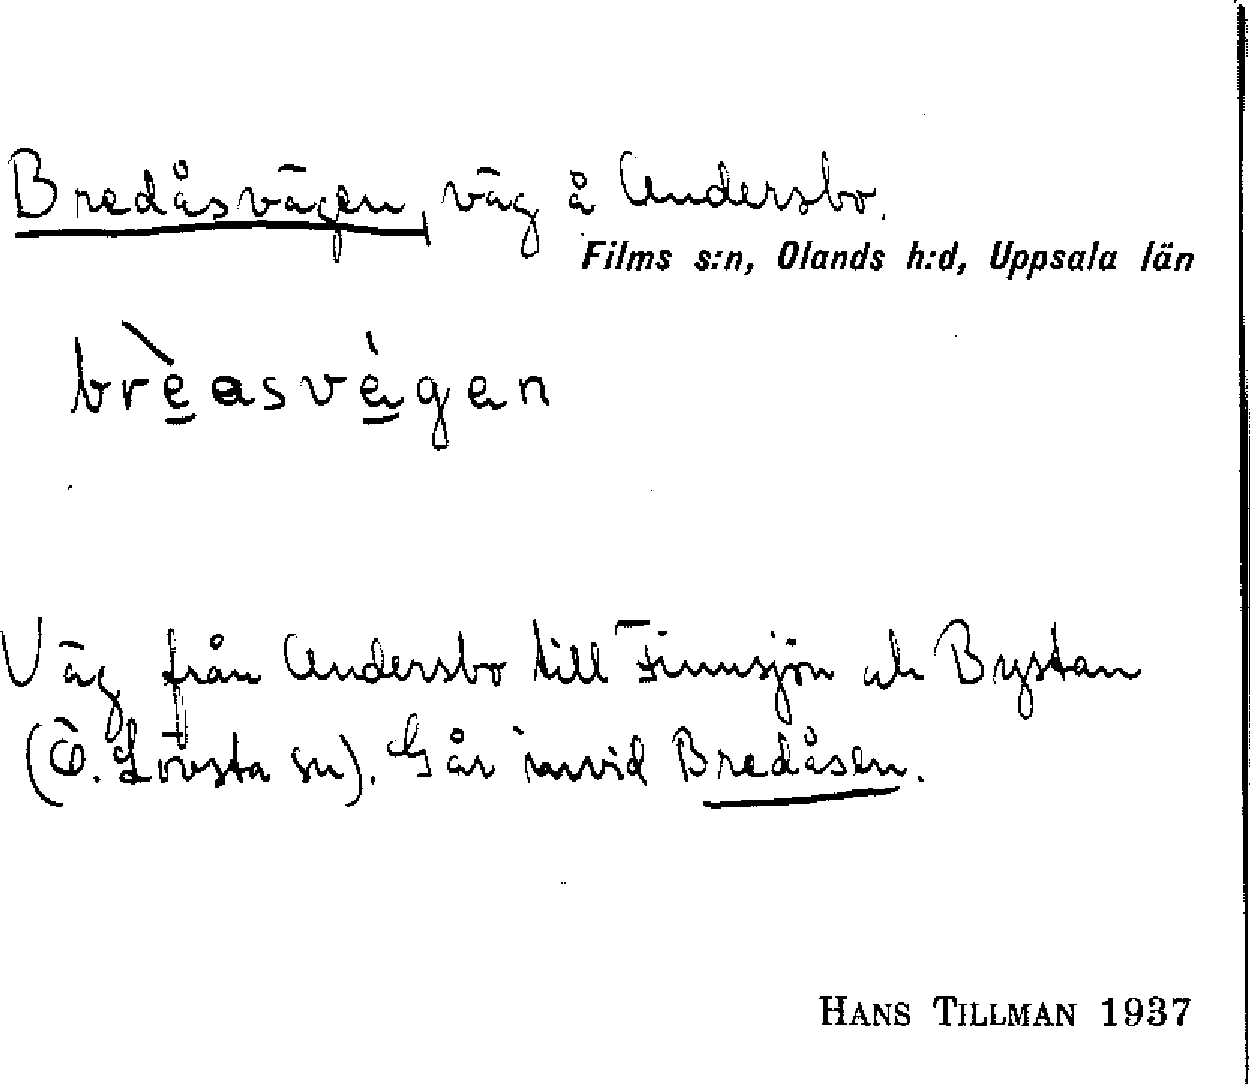 Bredåsvägen, väg å Andersbo.
Films s:n, Olands h:d, Uppsala län
Väg från Andersbo till Finnsjön och Bystan
(Ö. Lövsta sn). Går invid Bredåsen.
HANS TILLMAN 1937